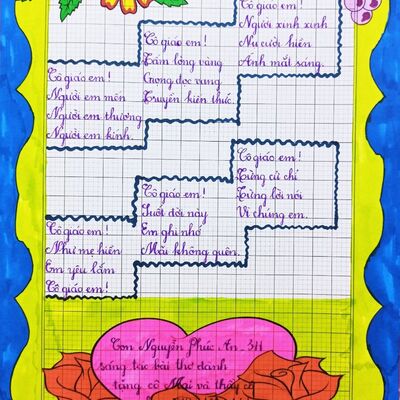 Cô giáo em!
Người em mến
Người em thương
Người em kính.
Cô giáo em!
Tấm lòng vàng
Giọng đọc vang
Truyền kiến thức.
Cô giáo em!
Người xinh xinh
Nụ cười hiền
Ánh mắt sáng.
Cô giáo em!
Như mẹ hiền
Em yêu lắm
Cô giáo em!
Cô giáo em!
Suốt đời này
Em ghi nhớ
Mãi không quên.
Cô giáo em!
Từng cử chỉ
Từng lời nói
Vì chúng em.
Con Nguyễn Phúc An. 3/1
sáng tác bài thơ dành
tặng cô Mai và thầy cô